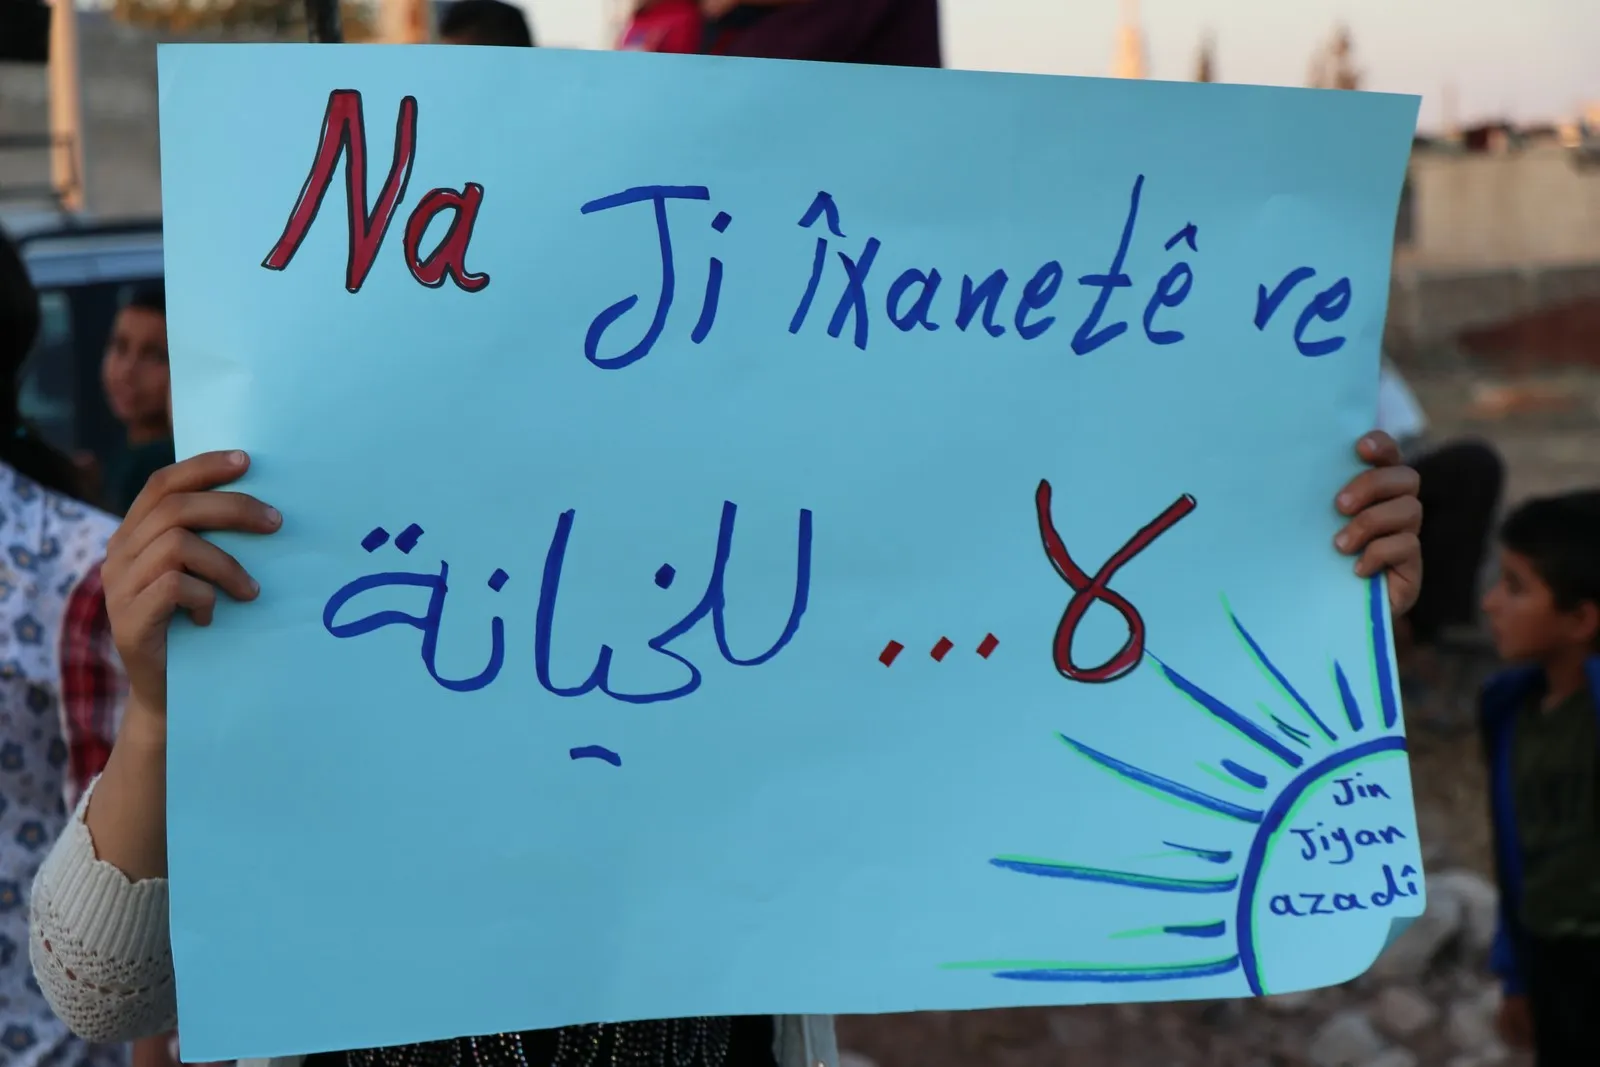 Na Ji îxanetê re
لا ... للخيانة
Jin
Jiyan
azadî